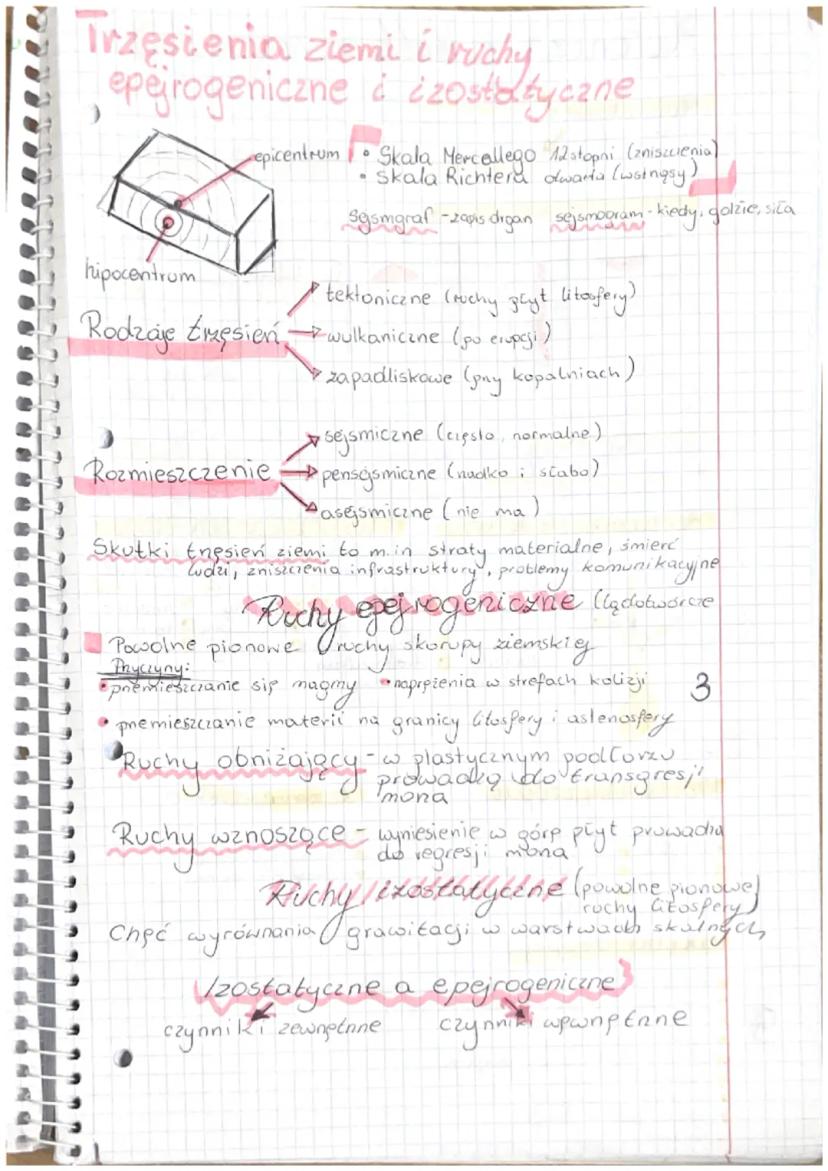 Trzęsienia ziemi i ruchy
epejrogeniczne i izostatyczne
epicentrum
• Skala Mercallego 12stopni (zniszczenia)
• Skala Richtera otwarta (wstrząsy)
Sejsmgraf - zapis drgan sejsmogram - kiedy, gdzie, siła
hipocentrum
Rodzaje trzęsień
tektoniczne (ruchy płyt litosfery)
wulkaniczne (po erupcji)
zapadliskowe (przy kopalniach)
Rozmieszczenie
sejsmiczne (często, normalne)
pensejsmiczne (rzadko i słabo)
asejsmiczne (nie ma)
Skutki trzęsień ziemi to m.in straty materialne, śmierć
ludzi, zniszczenia infrastruktury, problemy komunikacyjne
Ruchy epejrogeniczne (lądotwórcze
Powolne pionowe ruchy skorupy ziemskiej
Przyczyny:
• przemieszczanie się magmy • naprężenia w strefach kolizji 3
• przemieszczanie materii na granicy litosfery i astenosfery
Ruchy obniżający - w plastycznym podłożu
prowadzą do transgresji
morza
Ruchy wznoszące - wyniesienie w górę płyt prowadzi
do regresji morza
Ruchy izostatyczne (powolne pionowe
ruchy litosfery)
Chęć wyrównania grawitacji w warstwach skalnych
Izostatyczne a epejrogeniczne
czynniki zewnętrzne czynniki wewnętrzne